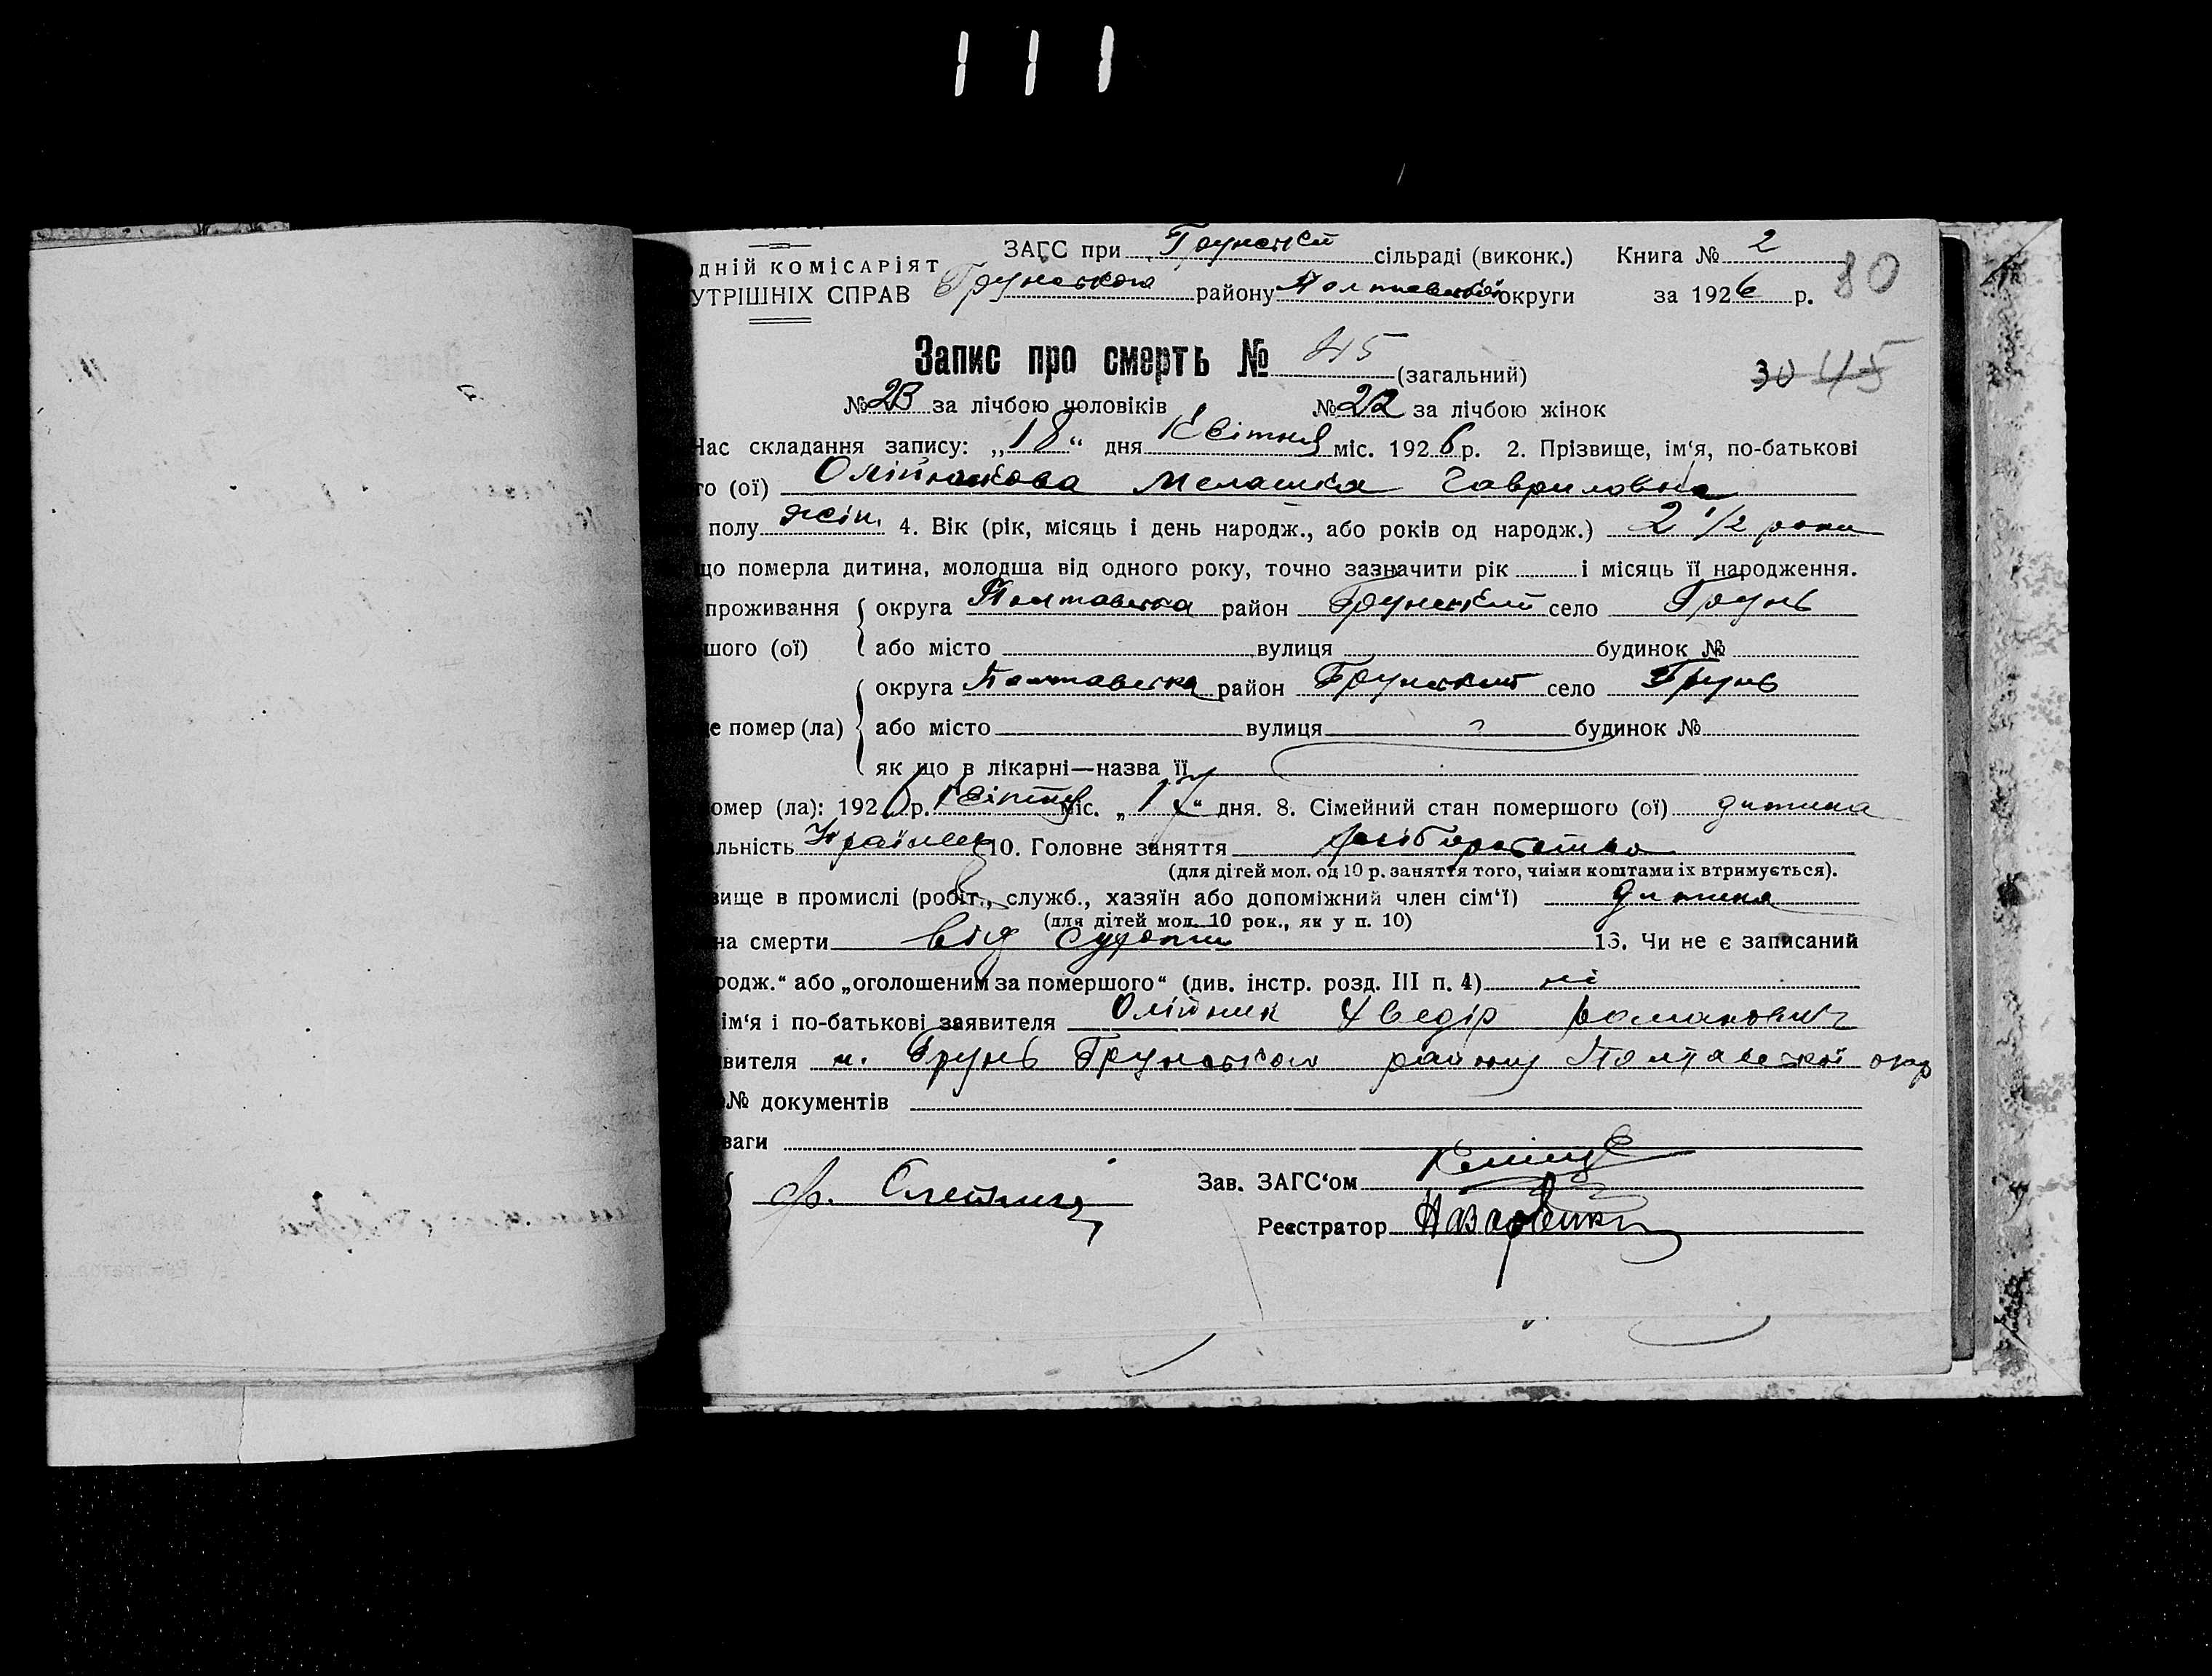 111
ЗАГС при Грунській сільраді (виконк.) Книга № 2
одній комісаріят
Грунського району Полтавської округи за 1926 р. 80
утрішніх справ
Запис про смерть № 45 (загальний) 30 45
№ 23 за лічбою чоловіків № 22 за лічбою жінок
Час складання запису: „18“ дня Квітня міс. 1926 р. 2. Прізвище, ім‘я, по-батькові
го (ої) Олійникова Мелашка Гавриловна
полу жін. 4. Вік (рік, місяць і день народж., або років од народж.) 2 1/2 роки
що померла дитина, молодша від одного року, точно зазначити рік і місяць її народження.
проживання округа Полтавська район Грунський село Грунь
шого (ої) або місто вулиця будинок №
округа Полтавська район Грунський село Грунь
де помер (ла) або місто вулиця будинок №
як що в лікарні—назва її
омер (ла): 1926 р. Квітня міс. „17“ дня. 8. Сімейний стан помершого (ої) дитина
альність Українець 10. Головне заняття хліборобство
(для дітей мол. од 10 р. заняття того, чиїми коштами їх втримується).
вище в промислі (робіт., служб., хазяїн або допоміжний член сім‘ї) дитина
(для дітей мол. 10 рок., як у п. 10)
на смерти від 13. Чи не є записаний
родж.“ або „оголошеним за помершого“ (див. інстр. розд. III п. 4) ні
ім‘я і по-батькові заявителя Олійник Хведір Романович
вителя м. Грунь Грунського району Полтавської окр
№ документів
ваги
Зав. ЗАГС‘ом
Ф. Олейник
Реєстратор